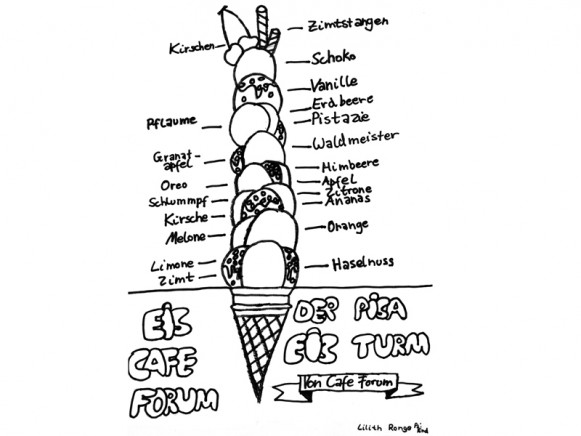 Zimtstangen
Kirschen
Schoko
Vanille
Erdbeere
Pistazie
Pflaume
Waldmeister
Granat-
apfel
Mimbeere
Oreo
Apfel
Zitrone
Schlummpf
Ananas
Kirsche
Orange
Melone
Limone
Haselnuss
Zimt
EIS
CAFE
FORUM
DER PISA
EIS TURM
Von Cafe Forum
Lilith Ronge